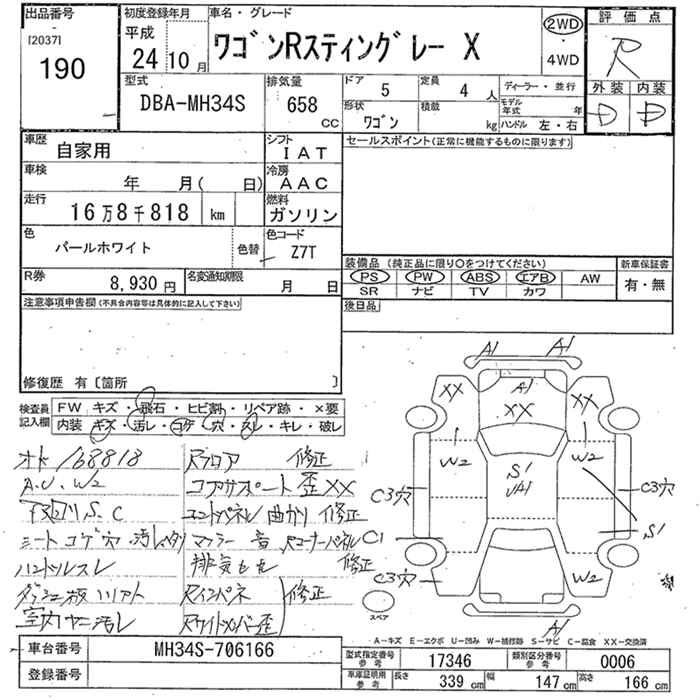 出品番号
[2037]
190
初度登録年月
平成
24 10 月
車名・グレード
ワゴンRスティングレー X
2WD
・
4WD
評価点
R
外装 内装
D D
型式
DBA-MH34S
排気量
658
CC
ドア
5
定員
4 人
形状
ワゴン
積載
kg
ディーラー・並行
モデル年式 年
ハンドル 左・右
車歴
自家用
シフト
IAT
車検
年 月( 日)
冷房
AAC
走行
16万8千818 km
燃料
ガソリン
色
パールホワイト
色替
色コード
Z7T
R券
8,930 円
名変通知期限
月 日
セールスポイント(正常に機能するものに限ります)
装備品 (純正品に限り○をつけてください)
PS PW ABS エアB AW
SR ナビ TV カワ
新車保証書
有・無
後日品
注意事項申告欄(不具合内容等は具体的に記入して下さい)
修復歴 有〔箇所 〕
検査員記入欄
FW キズ・飛石・ヒビ割・リペア跡・×要
内装 キズ・汚レ・コゲ・穴・スレ・キレ・破レ
オド 168818
A.U.W2
下回りS.C
シート コゲ穴 汚レ
ハンドルスレ
室内ヤニ汚レ
Rフロア 修正
コアサポート歪XX
エンドパネル 曲がり 修正
マフラー 音
Rコーナーパネル 修正
排気モレ
Rインパネ 修正
Rサイドメンバー歪
A1
A1
A1
XX
XX
XX
W2
W2
S1
UA1
C3穴
C3穴
C1
S1
C3穴
W2
A1
スペア
A-キズ E-エクボ U-凹み W-補修跡 S-サビ C-腐食 XX-交換済
車台番号
MH34S-706166
登録番号
型式指定番号 参考
17346
類別区分番号 参考
0006
車庫証明用 参考
長さ 339 cm
幅 147 cm
高さ 166 cm